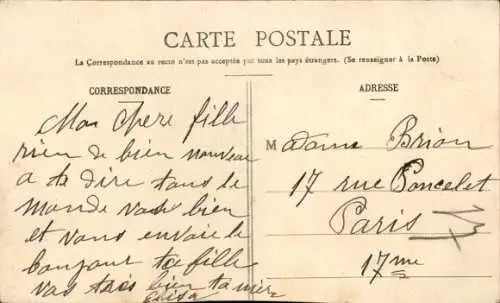 CARTE POSTALE
La Correspondance au recto n'est pas acceptée par tous les pays étrangers. (Se renseigner à la Poste)
CORRESPONDANCE
Mon chere fille
rien de bien nouveau
a te dire tous le
monde vas bien
et vous envoie le
bonjour ta fille
vas très bien ta mère
Elisa
ADRESSE
Madame Brion
17 rue Poncelet
Paris
17me